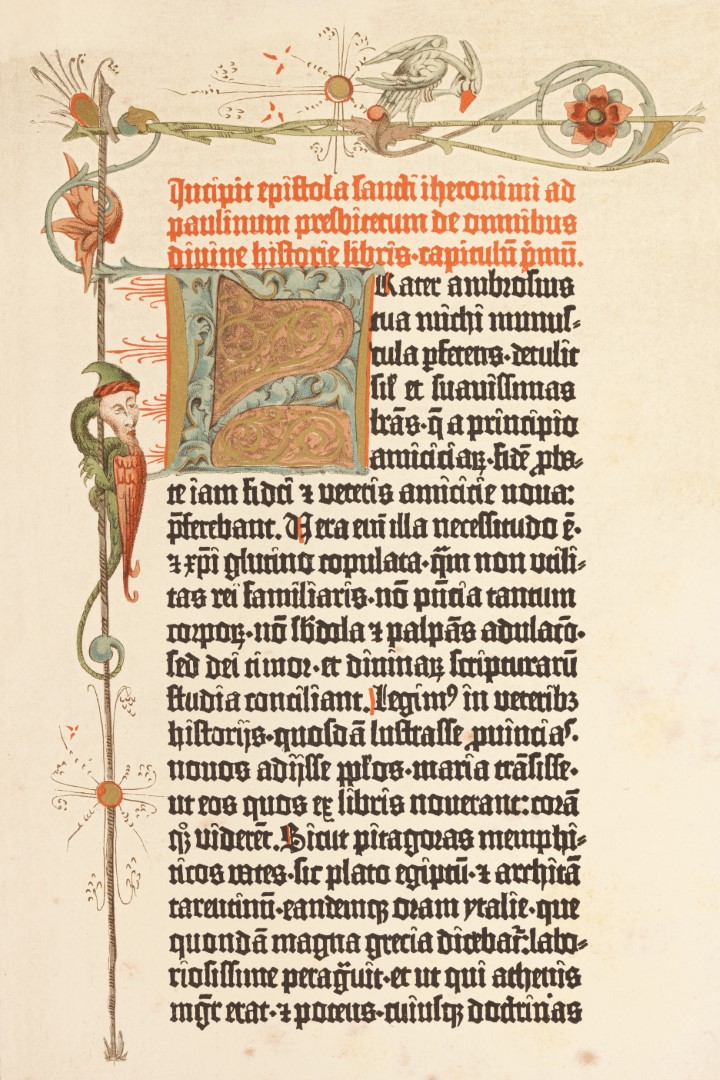 Incipit epistola sancti iheronimi ad
paulinum presbiterum de omnibus
divine historie libris·capitulū p̄mū.
Frater ambrosius
tua michi munus⸗
cula pferens·detulit
sil' et suavissimas
lrās·q̄ a principio
amiciciaꝝ·fidē ꝓba⸗
te iam fidei ⁊ veteris amicicie nova:
p̄ferebant. Vera eni illa necessitudo ē·
⁊ xp̄i glutino copulata·q̄m non utili⸗
tas rei familiaris·nō pn̄cia tantum
corpoꝝ·nō sb̄dola ⁊ palpās adulacō·
sed dei timor·et divinaꝝ scripturarū
studia conciliant. Legimꝰ in veteribꝫ
historijs·quosdā lustrasse ꝓuīcias·
novos adijsse pp̄los·maria trāsisse·
ut eos quos ex libris noverant: corā
qꝫ viderēt. Sicut pitagoras memphi⸗
ticos vates·sic plato egiptū·⁊ architā
tarentinū·eandemqꝫ oram ytalie·que
quondā magna grecia dicebat̄: labo⸗
riosissime peragͣvit·et ut qui athenis
mgr̄ erat·⁊ potens·cuiusqꝫ doctrinas